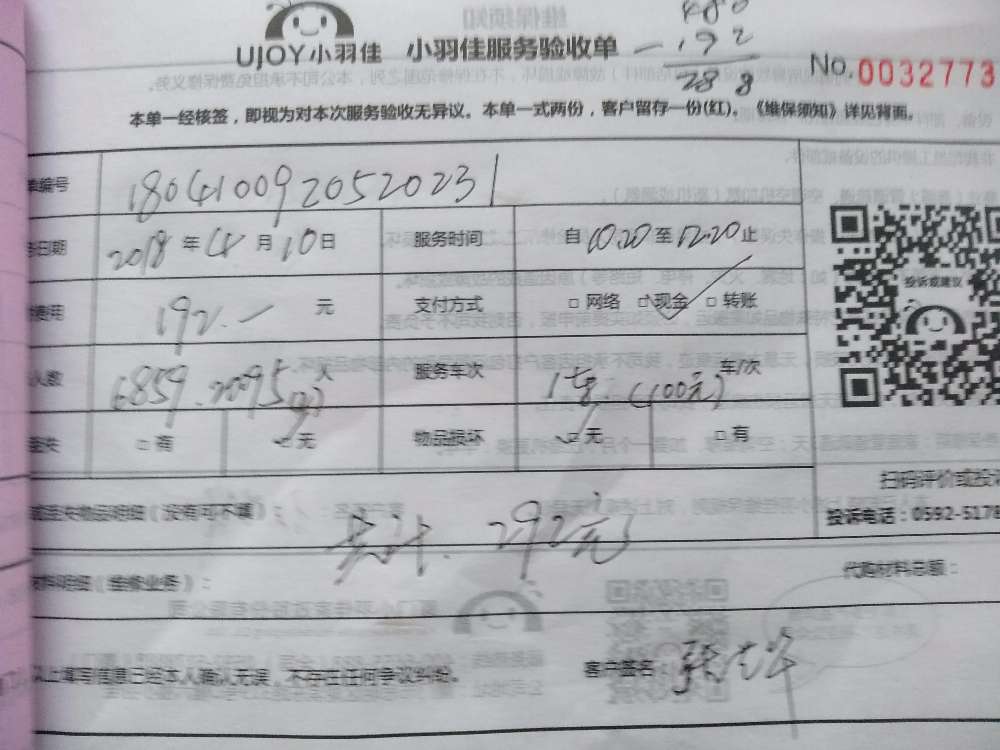 480
-192
288
UJOY小羽佳 小羽佳服务验收单
No.0032773
本单一经核签，即视为对本次服务验收无异议。本单一式两份，客户留存一份(红)。《维保须知》详见背面。
单编号 1804100920520231
日期 2018年4月10日 服务时间 自10.20至12.20止
费用 192.- 元 支付方式 □网络 ☑现金 □转账
人数 6859、2095 人 服务车次 1 (100元) 车/次
□有 ☑无 物品损坏 ☑无 □有
投诉或建议
扫码评价或投
投诉电话：0592-5178
物品明细（没有可不填）：
共计. 292元
材料明细（维修业务）： 代购材料总额：
以上填写信息已经本人确认无误，不存在任何争议纠纷。 客户签名 张